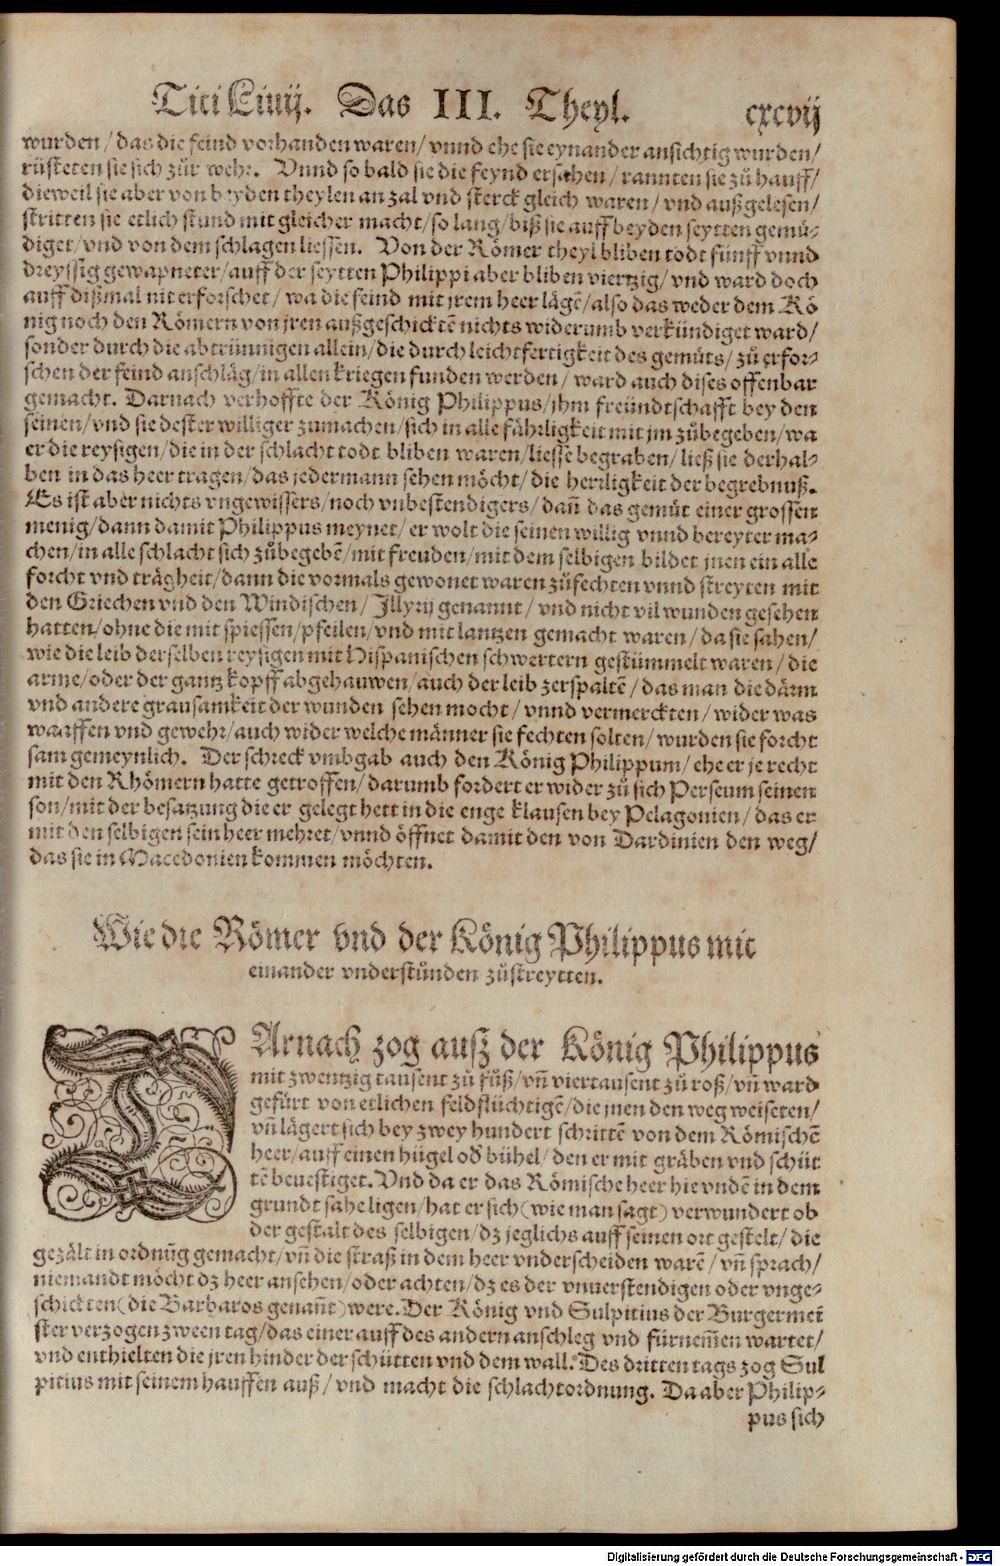 Titi Liuij. Das III. Theyl. cxcvij
wurden / das die feind vorhanden waren / vnnd ehe sie eynander ansichtig wurden /
rüsteten sie sich zůr wehr. Vnnd so bald sie die feynd ersahen / rannten sie zů hauff /
dieweil sie aber von beyden theylen an zal vnd sterck gleich waren / vnd außgelesen /
stritten sie etlich stund mit gleicher macht / so lang / biß sie auff beyden seytten gemů-
diget / vnd von dem schlagen liessen. Von der Römer theyl bliben todt fünff vnnd
dreyssig gewapneter / auff der seytten Philippi aber bliben viertzig / vnd ward doch
auff dißmal nit erforschet / wa die feind mit jrem heer lägē / also das weder dem Kö
nig noch den Römern von jren außgeschicktē nichts widerumb verkündiget ward /
sonder durch die abtrünnigen allein / die durch leichtfertigkeit des gemüts / zů erfor-
schen der feind anschläg / in allen kriegen funden werden / ward auch dises offenbar
gemacht. Darnach verhoffte der König Philippus / jhm freündtschafft bey den
seinen / vnd sie dester williger zumachen / sich in alle fährligkeit mit jm zůbegeben / wa
er die reysigen / die in der schlacht todt bliben waren / liesse begraben / ließ sie derhal-
ben in das heer tragen / das jedermann sehen möcht / die herrligkeit der begrebnuß.
Es ist aber nichts vngewissers / noch vnbestendigers / dañ das gemüt einer grossen
menig / dann damit Philippus meynet / er wolt die seinen willig vnnd bereyter ma-
chen / in alle schlacht sich zůbegebē / mit freuden / mit dem selbigen bildet jnen ein alle
forcht vnd trägheit / dann die vormals gewonet waren zůfechten vnnd streyten mit
den Griechen vnd den Windischen / Jllyrij genannt / vnd nicht vil wunden gesehen
hatten / ohne die mit spiessen / pfeilen / vnd mit lantzen gemacht waren / da sie sahen /
wie die leib derselben reysigen mit Hispanischen schwertern gestümmelt waren / die
arme / oder der gantz kopff abgehauwen / auch der leib zerspaltē / das man die därm
vnd andere grausamkeit der wunden sehen mocht / vnnd vermerckten / wider was
waaffen vnd gewehr / auch wider welche männer sie fechten solten / wurden sie forcht
sam gemeynlich. Der schreck vmbgab auch den König Philippum / ehe er je recht
mit den Rhömern hatte getroffen / darumb fordert er wider zů sich Perseum seinen
son / mit der besatzung die er gelegt hett in die enge klausen bey Pelagonien / das er
mit den selbigen sein heer mehret / vnnd öffnet damit den von Dardinien den weg /
das sie in Macedonien kommen möchten.
Wie die Römer vnd der König Philippus mit
einander vnderstůnden zůstreytten.
DArnach zog auß der König Philippus
mit zwentzig tausent zů fůß / vñ viertausent zů roß / vñ ward
gefürt von etlichen feldflüchtigē / die jnen den weg weiseten /
vñ lägert sich bey zwey hundert schrittē von dem Römischē
heer / auff einen hügel od̄ bühel / den er mit gräben vnd schüt
tē beuestiget. Vnd da er das Römische heer hie vndē in dem
grundt sahe ligen / hat er sich (wie man sagt) verwundert ob
der gestalt des selbigen / dz jeglichs auff seinen ort gestelt / die
gezält in ordnūg gemacht / vñ die straß in dem heer vnderscheiden warē / vñ sprach /
niemandt möcht dz heer ansehen / oder achten / dz es der vnuerstendigen oder vnge-
schickten (die Barbaros genañt) were. Der König vnd Sulpitius der Burgermei
ster verzogen zween tag / das einer auff des andern anschleg vnd fürnem̄en wartet /
vnd enthielten die jren hinder der schütten vnd dem wall. Des dritten tags zog Sul
pitius mit seinem hauffen auß / vnd macht die schlachtordnung. Da aber Philip-
pus sich
Digitalisierung gefördert durch die Deutsche Forschungsgemeinschaft - DFG